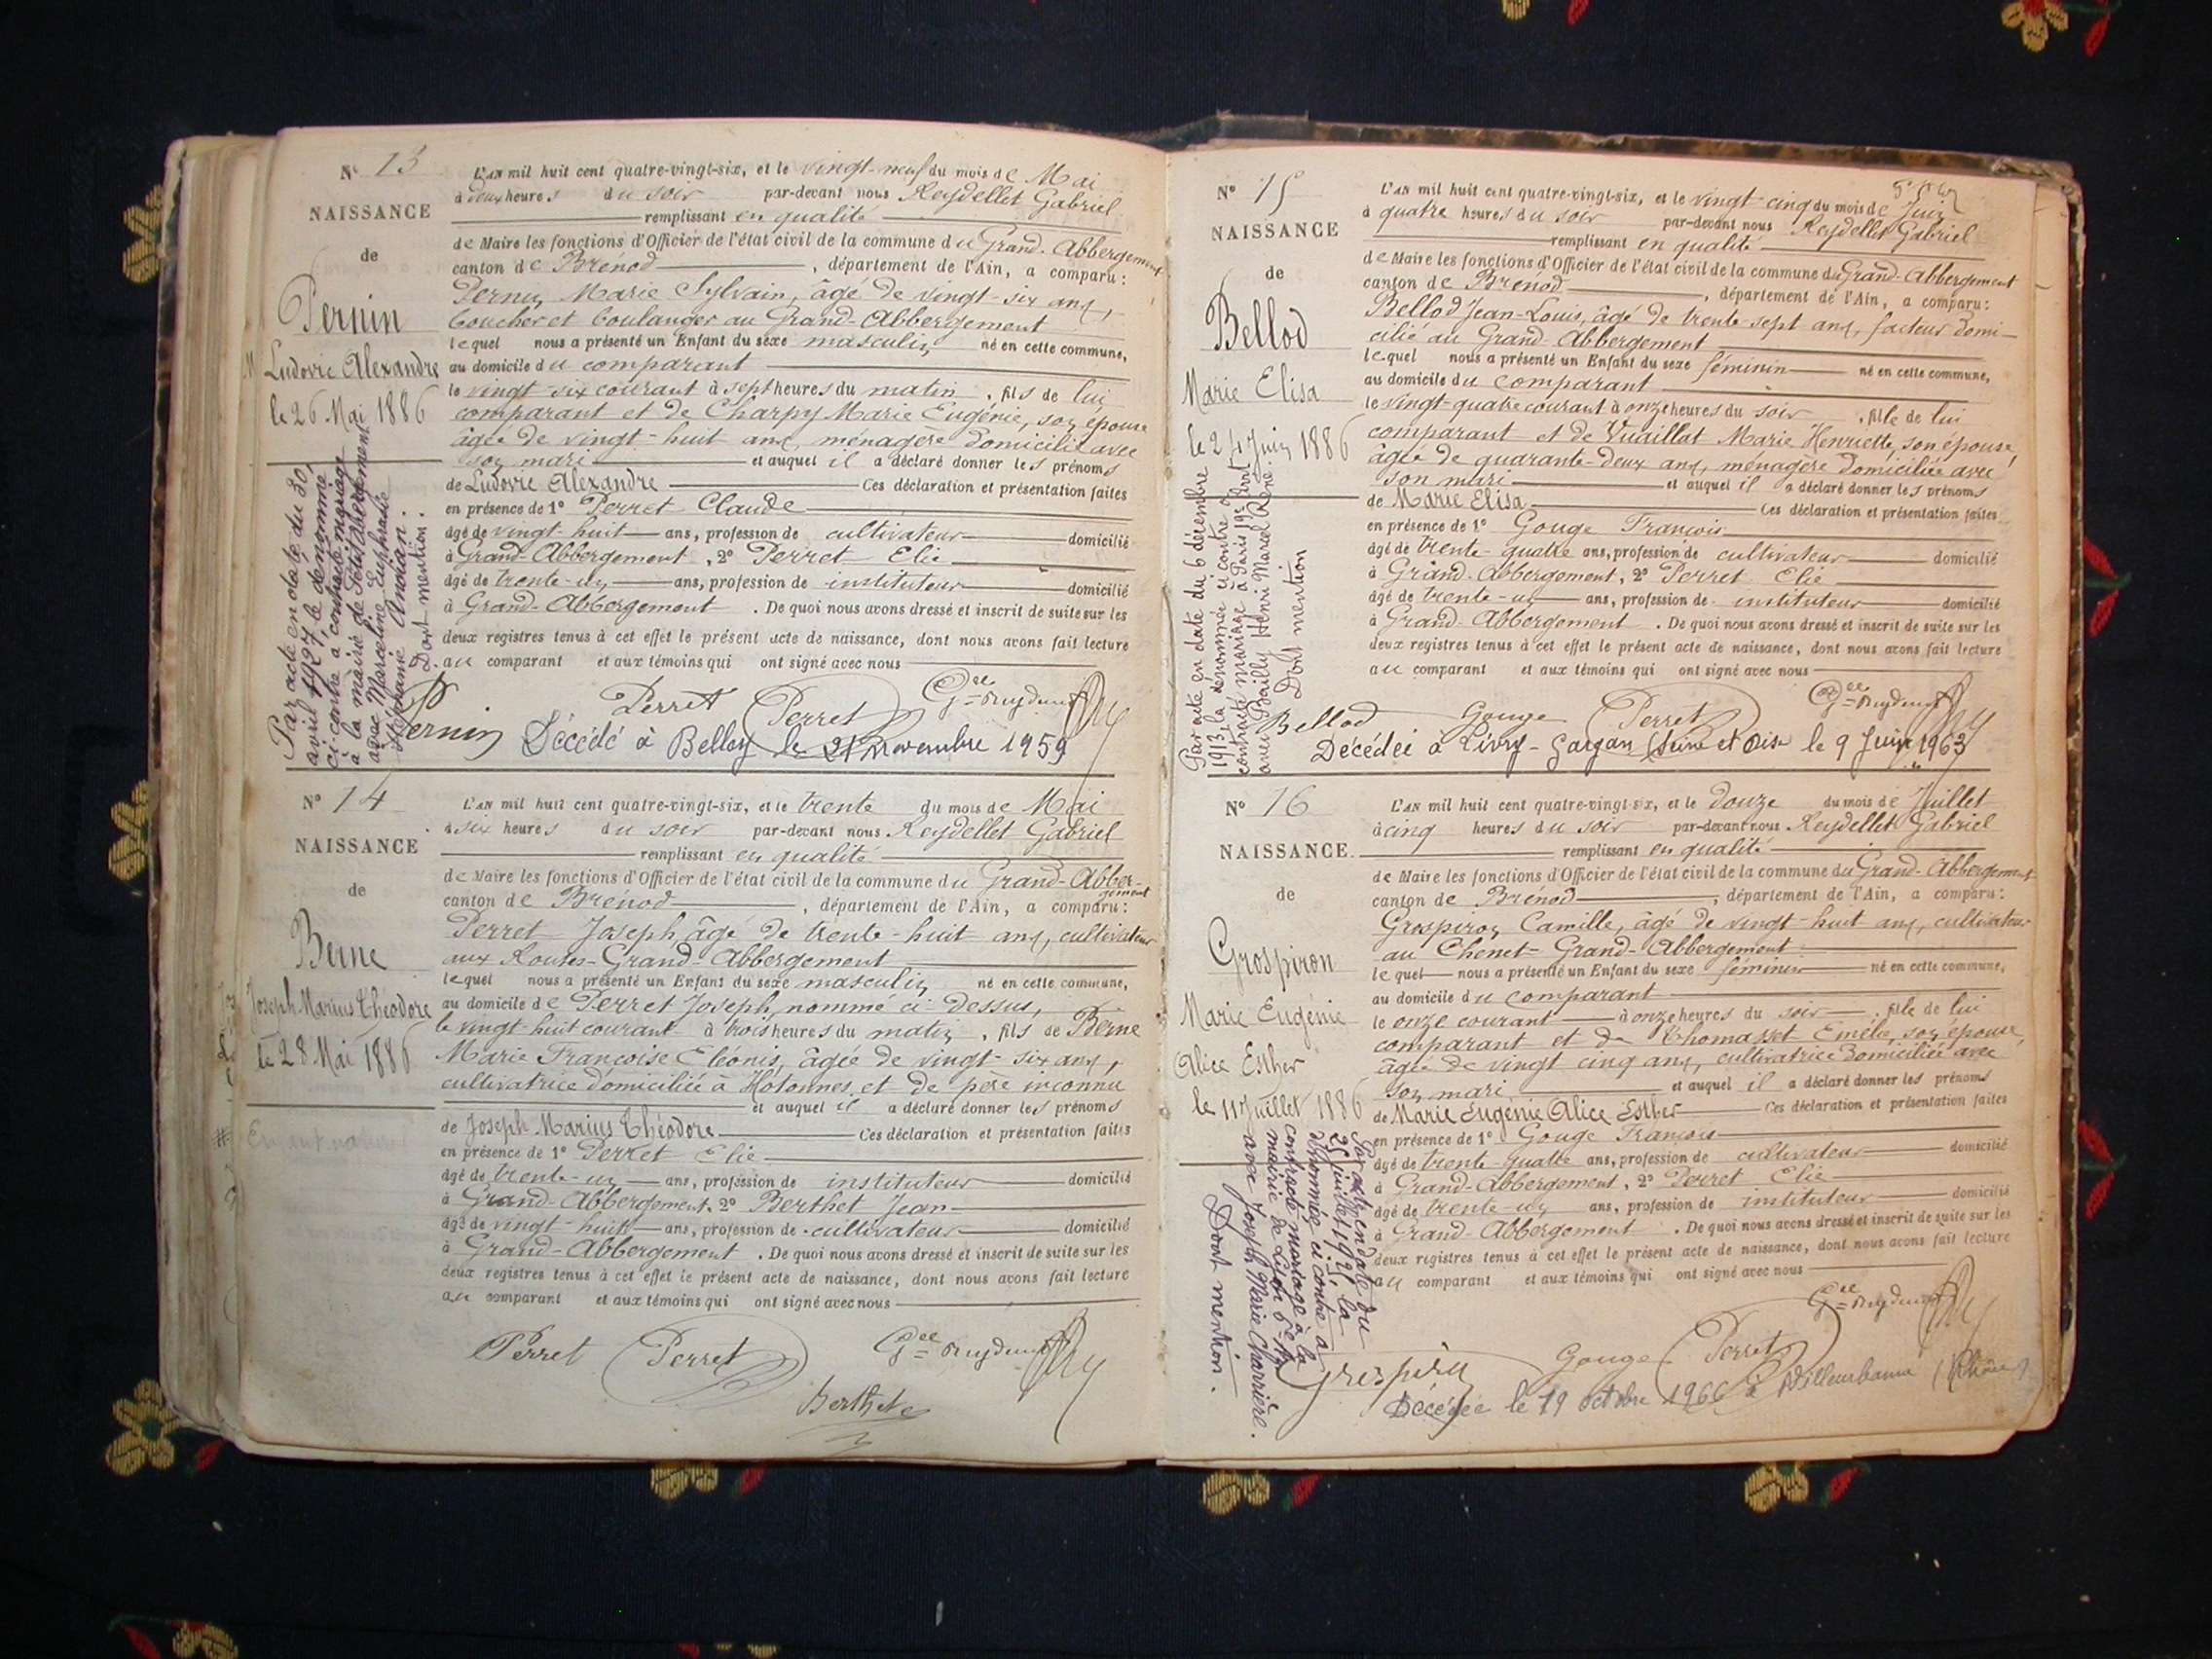 N° 13
NAISSANCE
de
Pernin
Ludovic Alexandre
le 26 Mai 1886
Par acte en date du 30
avril 1927, le dénommé
ci-contre a contracté mariage
à la mairie de Petit Abergement
avec Marceline Euphrasie
Dont mention.
L'AN mil huit cent quatre-vingt-six, et le vingt-neuf du mois de Mai
à deux heures du soir par-devant nous Reydellet Gabriel
remplissant en qualité
de Maire les fonctions d'Officier de l'état civil de la commune du Grand-Abbergement
canton de Brénod, département de l'Ain, a comparu:
Pernin Marie Sylvain, âgé de vingt-six ans,
boucher et boulanger au Grand-Abbergement
lequel nous a présenté un Enfant du sexe masculin né en cette commune,
au domicile du comparant
le vingt-six courant à sept heures du matin, fils de lui
comparant et de Charpy Marie Eugénie, son épouse
âgée de vingt-huit ans, ménagère domiciliée avec
son mari et auquel il a déclaré donner les prénoms
de Ludovic Alexandre Ces déclaration et présentation faites
en présence de 1° Perret Claude
âgé de vingt-huit ans, profession de cultivateur domicilié
à Grand-Abbergement, 2° Perret Elie
âgé de trente-un ans, profession de instituteur domicilié
à Grand-Abbergement. De quoi nous avons dressé et inscrit de suite sur les
deux registres tenus à cet effet le présent acte de naissance, dont nous avons fait lecture
au comparant et aux témoins qui ont signé avec nous
Pernin Perret Perret
Décédé à Belley le 21 novembre 1959
N° 14
NAISSANCE
de
Berne
Joseph Marius Théodore
le 28 Mai 1886
L'AN mil huit cent quatre-vingt-six, et le trente du mois de Mai
à six heures du soir par-devant nous Reydellet Gabriel
remplissant en qualité
de Maire les fonctions d'Officier de l'état civil de la commune du Grand-Abbergement
canton de Brénod, département de l'Ain, a comparu:
Perret Joseph âgé de trente-huit ans, cultivateur
aux Routes-Grand-Abbergement
lequel nous a présenté un Enfant du sexe masculin né en cette commune,
au domicile de Perret Joseph, nommé ci-dessus,
le vingt-huit courant à trois heures du matin, fils de Berne
Marie Françoise Eléonis, âgée de vingt-six ans,
cultivatrice domiciliée à Hotonnes et de père inconnu
et auquel il a déclaré donner les prénoms
de Joseph Marius Théodore Ces déclaration et présentation faites
en présence de 1° Perret Elie
âgé de trente-un ans, profession de instituteur domicilié
à Grand-Abbergement, 2° Berthet Jean
âgé de vingt-huit ans, profession de cultivateur domicilié
à Grand-Abbergement. De quoi nous avons dressé et inscrit de suite sur les
deux registres tenus à cet effet le présent acte de naissance, dont nous avons fait lecture
au comparant et aux témoins qui ont signé avec nous
Perret Perret
Berthet
N° 15
NAISSANCE
de
Bellod
Marie Elisa
le 24 Juin 1886
Par acte en date du 6 décembre
1913 la dénommée ci contre a
contracté mariage à Paris 19e Arrt
avec Bailly Henri Marcel René.
Dont mention
L'AN mil huit cent quatre-vingt-six, et le vingt-cinq du mois de Juin
à quatre heures du soir par-devant nous Reydellet Gabriel
remplissant en qualité
de Maire les fonctions d'Officier de l'état civil de la commune du Grand-Abbergement
canton de Brénod, département de l'Ain, a comparu:
Bellod Jean-Louis, âgé de trente-sept ans, facteur domi-
cilié au Grand-Abbergement
lequel nous a présenté un Enfant du sexe féminin né en cette commune,
au domicile du comparant
le vingt-quatre courant à onze heures du soir, fille de lui
comparant et de Vuaillat Marie Henriette, son épouse,
âgée de quarante-deux ans, ménagère domiciliée avec
son mari et auquel il a déclaré donner les prénoms
de Marie Elisa Ces déclaration et présentation faites
en présence de 1° Gouge François
âgé de trente-quatre ans, profession de cultivateur domicilié
à Grand-Abbergement, 2° Perret Elie
âgé de trente-un ans, profession de instituteur domicilié
à Grand-Abbergement. De quoi nous avons dressé et inscrit de suite sur les
deux registres tenus à cet effet le présent acte de naissance, dont nous avons fait lecture
au comparant et aux témoins qui ont signé avec nous
Bellod Gouge Perret
Décédée à Livry-Gargan (Seine et Oise le 9 Juin 1963
N° 16
NAISSANCE.
de
Grospiron
Marie Eugénie
Alice Esther
le 11 Juillet 1886
Par acte en date du
25 juillet 1921 la
dénommée ci contre a
contracté mariage à la
mairie de Lyon 6e
avec Joseph Marie Charrière.
Dont mention.
L'AN mil huit cent quatre-vingt-six, et le douze du mois de Juillet
à cinq heures du soir par-devant nous Reydellet Gabriel
remplissant en qualité
de Maire les fonctions d'Officier de l'état civil de la commune du Grand-Abbergement
canton de Brénod, département de l'Ain, a comparu:
Grospiron Camille, âgé de vingt-huit ans, cultivateur
au Chenet-Grand-Abbergement
lequel nous a présenté un Enfant du sexe féminin né en cette commune,
au domicile du comparant
le onze courant à onze heures du soir, fille de lui
comparant et de Thomasset Emélie son épouse,
âgée de vingt cinq ans, cultivatrice domiciliée avec
son mari et auquel il a déclaré donner les prénoms
de Marie Eugénie Alice Esther Ces déclaration et présentation faites
en présence de 1° Gouge François
âgé de trente-quatre ans, profession de cultivateur domicilié
à Grand-Abbergement, 2° Perret Elie
âgé de trente-un ans, profession de instituteur domicilié
à Grand-Abbergement. De quoi nous avons dressé et inscrit de suite sur les
deux registres tenus à cet effet le présent acte de naissance, dont nous avons fait lecture
au comparant et aux témoins qui ont signé avec nous
Gouge Perret
Décédée le 19 octobre 1966 à Villeurbanne (Rhône)